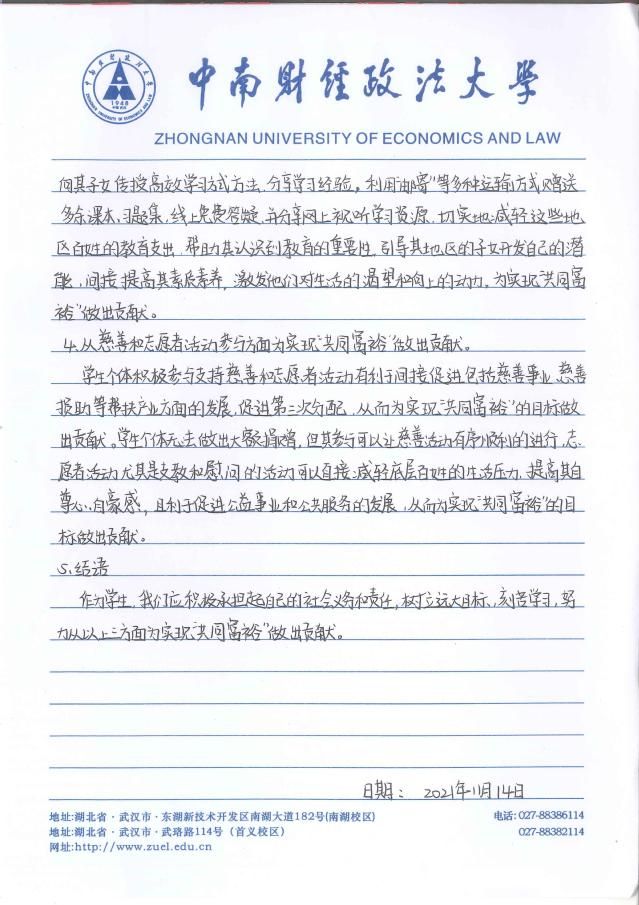 中南财经政法大学
ZHONGNAN UNIVERSITY OF ECONOMICS AND LAW
中南财经政法大学
1948
ZHONGNAN UNIVERSITY OF ECONOMICS AND LAW
向其子女传授高效学习方式方法、分享学习经验，利用"邮寄"等多种运输方式赠送
多余课本、习题集，线上免费答疑，并分享网上视听学习资源，切实地减轻这些地
区百姓的教育支出，帮助其认识到教育的重要性，引导其地区的子女开发自己的潜
能，间接提高其素质素养，激发他们对生活的渴望和向上的动力，为实现"共同富
裕"做出贡献。
4.从慈善和志愿者活动参与方面为实现"共同富裕"做出贡献。
学生个体积极参与支持慈善和志愿者活动有利于间接促进包括慈善事业、慈善
捐助等帮扶产业方面的发展，促进第三次分配，从而为实现"共同富裕"的目标做
出贡献。学生个体无法做出大额捐赠，但其参与可以让慈善活动有序顺利的进行，志
愿者活动尤其是支教和慰问的活动可以直接减轻底层百姓的生活压力，提高其自
尊心、自豪感，且利于促进公益事业和公共服务的发展，从而为实现"共同富裕"的目
标做出贡献。
5.结语
作为学生，我们应积极承担起自己的社会义务和责任，树立远大目标，刻苦学习，努
力从以上三方面为实现"共同富裕"做出贡献。
日期： 2021年11月14日
地址:湖北省·武汉市·东湖新技术开发区南湖大道182号(南湖校区) 电话: 027-88386114
地址:湖北省·武汉市·武珞路114号（首义校区） 027-88382114
网址:http://www.zuel.edu.cn